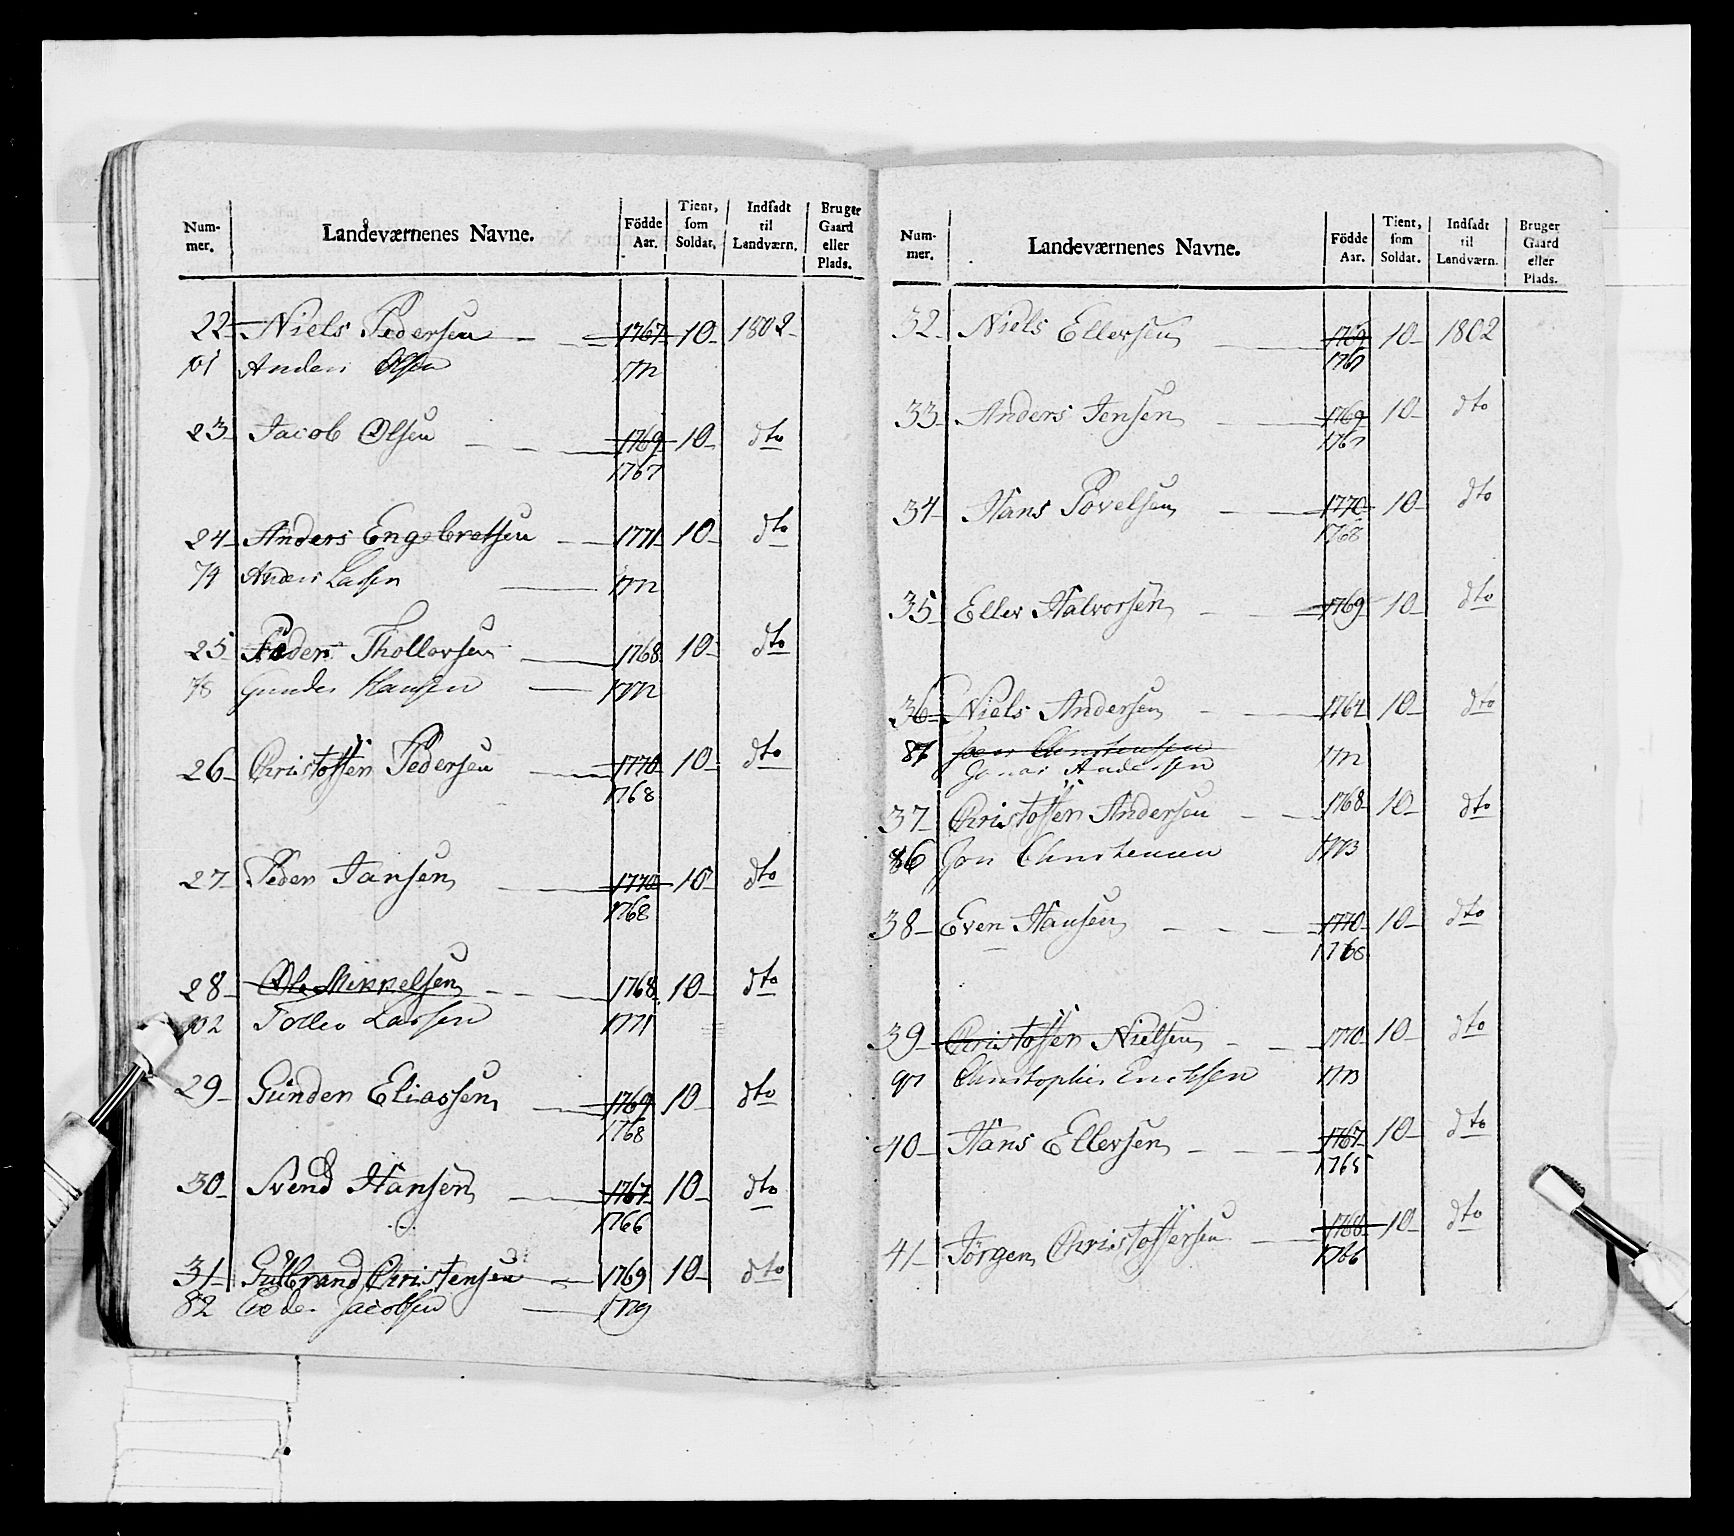 Nummer. Landeværnenes Navne. Födde Aar. Tient, som Soldat. Indsadt til Landværn. Bruger Gaard eller Plads.
22 Niels Pedersen 1767 10 1802
101 Anders Olsen 1772
23 Jacob Olsen 1769 10 dto
1767
24 Anders Engebretsen 1771 10 dto
74 Anders Larsen 1772
25 Peder Thollersen 1768 10 dto
78 Gunder Hansen 1772
26 Christoffer Pedersen 1770 10 dto
1768
27 Peder Jansen 1770 10 dto
1768
28 Ole Mikkelsen 1768 10 dto
102 Toller Larsen 1771
29 Günder Eliassen 1769 10 dto
1768
30 Svend Hansen 1767 10 dto
1766
31 Gulbrand Christensen 1769 10 dto
82 Peder Jacobsen
Nummer. Landeværnenes Navne. Födde Aar. Tient, som Soldat. Indsadt til Landværn. Bruger Gaard eller Plads.
32 Niels Ellersen 1769 10 1802
1767
33 Anders Jensen 1769 10 dto
1767
34 Hans Povelsen 1770 10 dto
1768
35 Eller Halvorsen 1769 10 dto
36 Niels Andersen 1764 10 dto
87 Christensen 1772
Andersen
37 Christoffer Andersen 1768 10 dto
86 Jon Christensen 1773
38 Even Hansen 1770 10 dto
1768
39 Christoffer Nielsen 1770 10 dto
97 Christopher Erichsen 1773
40 Hans Ellersen 1767 10 dto
1765
41 Jörgen Christoffersen 1768 10 dto
1766